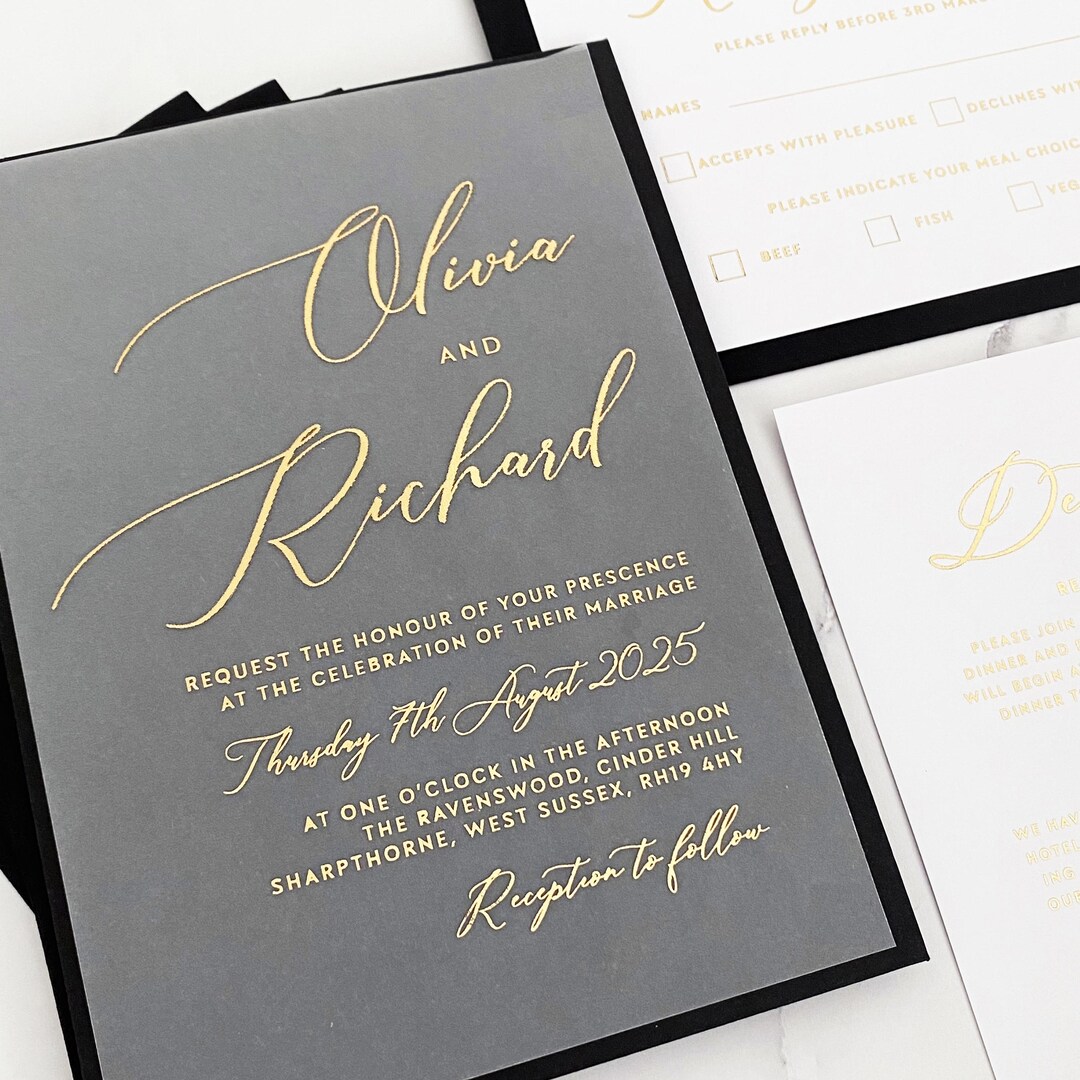 Olivia
AND
Richard
REQUEST THE HONOUR OF YOUR PRESCENCE
AT THE CELEBRATION OF THEIR MARRIAGE
Thursday 7th August 2025
AT ONE O'CLOCK IN THE AFTERNOON
THE RAVENSWOOD, CINDER HILL
SHARPTHORNE, WEST SUSSEX, RH19 4HY
Reception to follow
PLEASE REPLY BEFORE 3RD
NAMES
ACCEPTS WITH PLEASURE DECLINES
PLEASE INDICATE YOUR MEAL
BEEF FISH
PLEASE JOIN
DINNER AND
WILL BEGIN
DINNER
WE